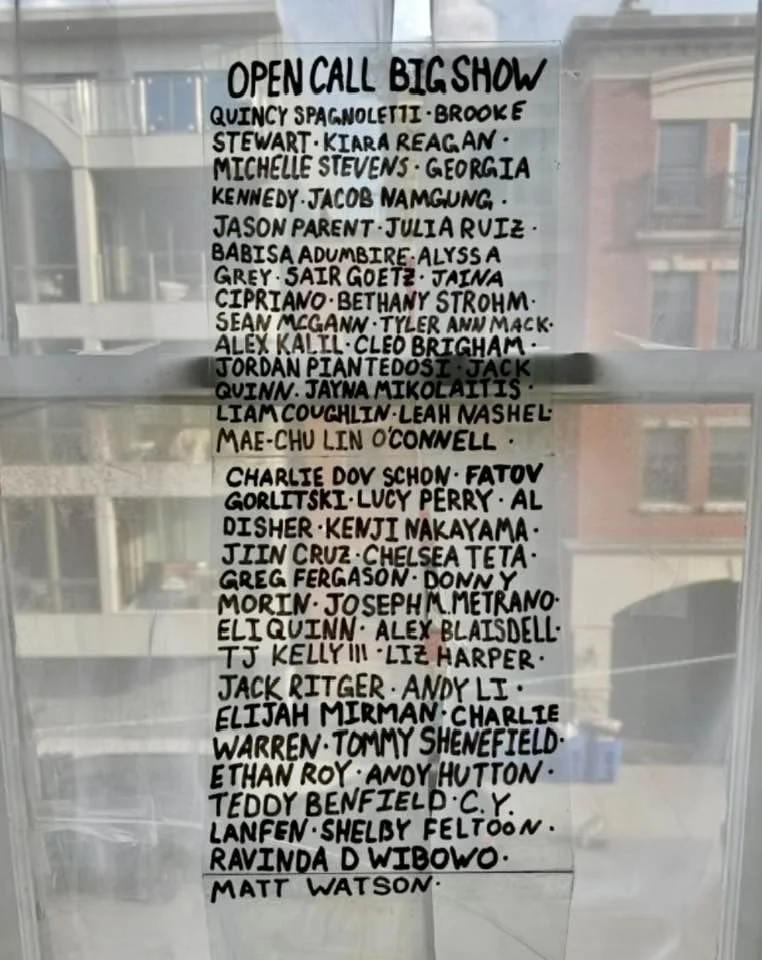 OPEN CALL BIG SHOW
QUINCY SPAGNOLETTI · BROOKE
STEWART · KIARA REAGAN ·
MICHELLE STEVENS · GEORGIA
KENNEDY · JACOB NAMGUNG ·
JASON PARENT · JULIA RUIZ ·
BABISA ADUMBIRE · ALYSSA
GREY · SAIR GOETZ · JAINA
CIPRIANO · BETHANY STROHM ·
SEAN MCGANN · TYLER ANN MACK ·
ALEX KALIL · CLEO BRIGHAM ·
JORDAN PIANTEDOSI · JACK
QUINN · JAYNA MIKOLAITIS ·
LIAM COUGHLIN · LEAH NASHEL ·
MAE-CHU LIN O'CONNELL ·
CHARLIE DOV SCHON · FATOV
GORLITSKI · LUCY PERRY · AL
DISHER · KENJI NAKAYAMA ·
JIIN CRUZ · CHELSEA TETA ·
GREG FERGASON · DONNY
MORIN · JOSEPH M. METRANO ·
ELI QUINN · ALEX BLAISDELL ·
TJ KELLY III · LIZ HARPER ·
JACK RITGER · ANDY LI ·
ELIJAH MIRMAN · CHARLIE
WARREN · TOMMY SHENEFIELD ·
ETHAN ROY · ANDY HUTTON ·
TEDDY BENFIELD · C.Y.
LANFEN · SHELBY FELTOON ·
RAVINDA D WIBOWO ·
MATT WATSON ·